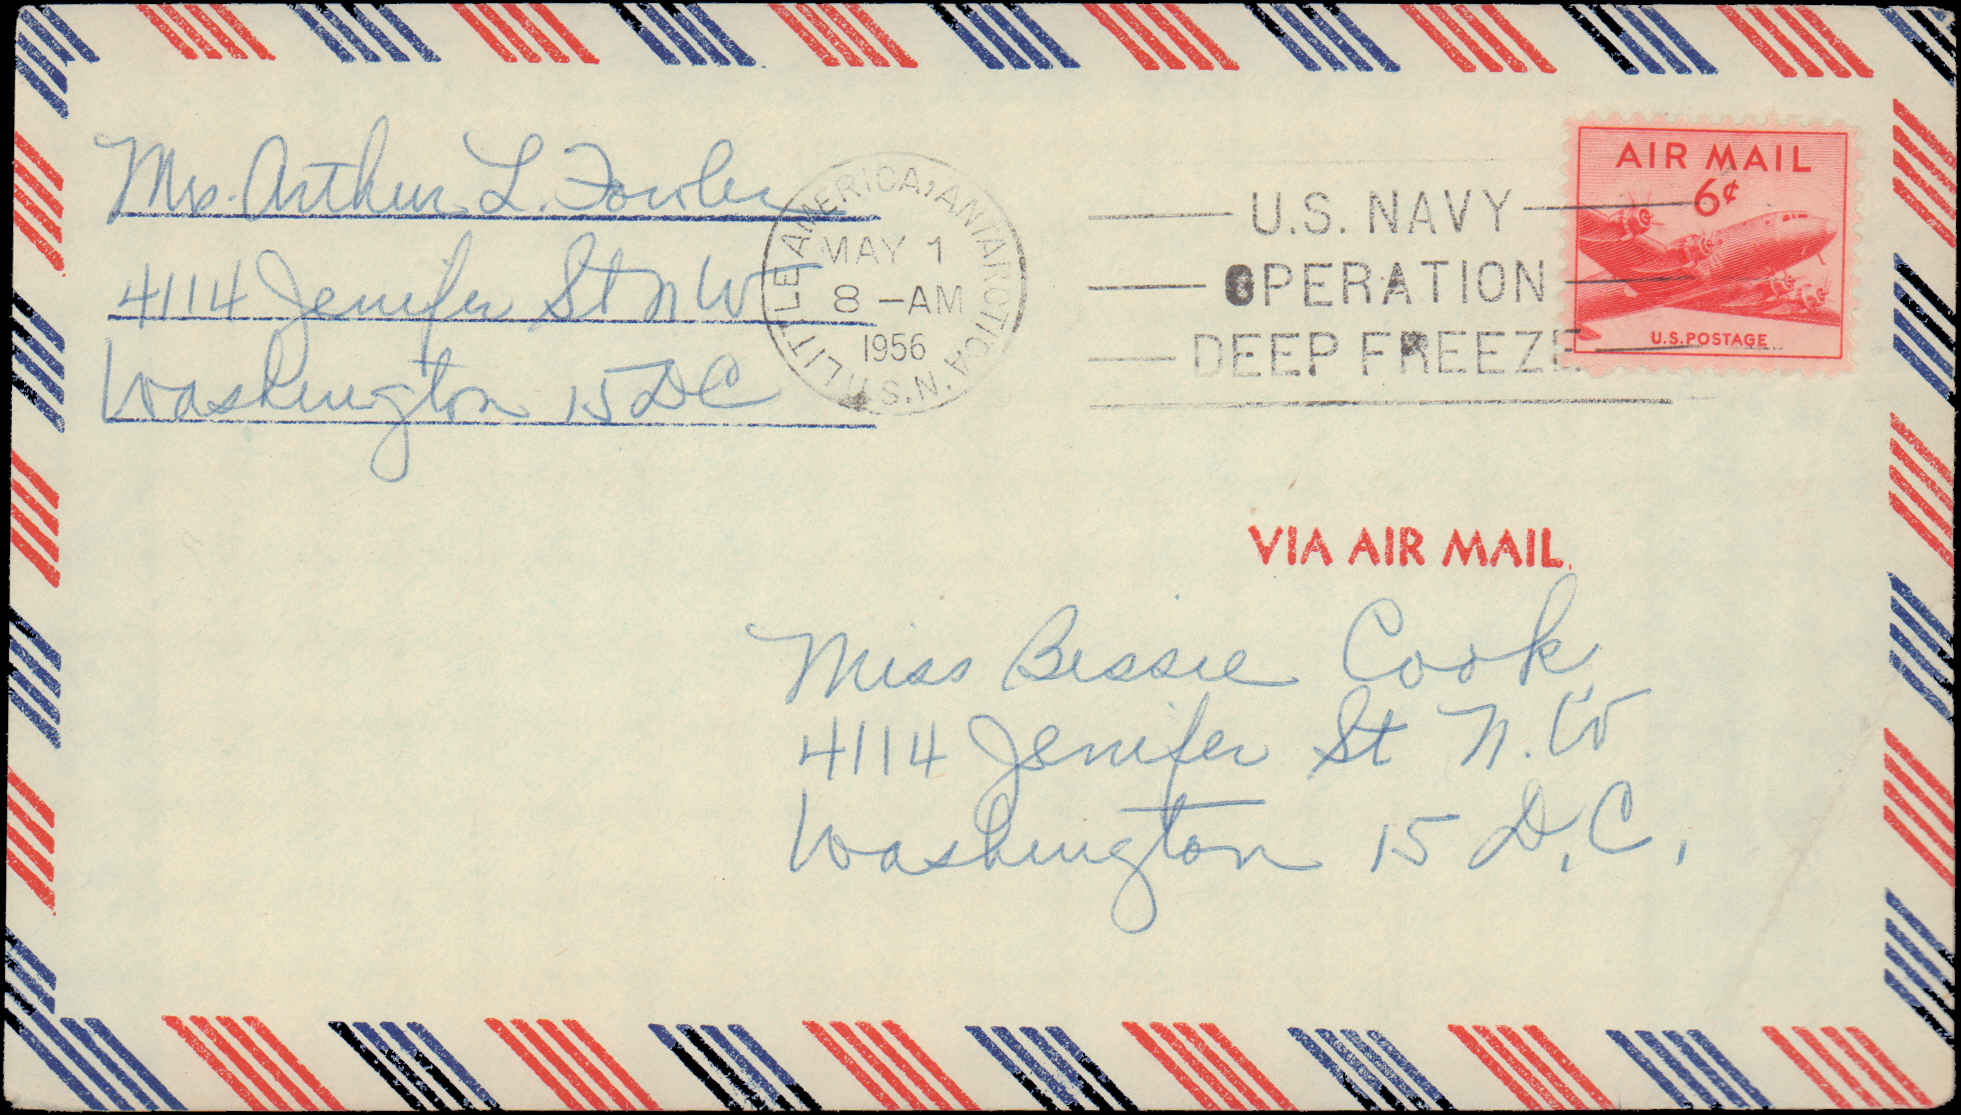 Mrs. Arthur L. Fowler
4114 Jenifer St NW
Washington 15 DC
LITTLE AMERICA, ANTARCTICA U.S.N.
MAY 1
8 -AM
1956
U.S. NAVY
OPERATION
DEEP FREEZE
AIR MAIL
6¢
U.S. POSTAGE
VIA AIR MAIL
Miss Bessie Cook
4114 Jenifer St N.W
Washington 15 D.C.